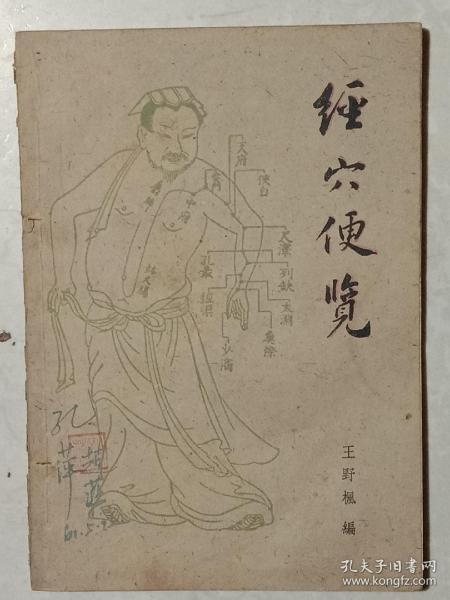 經穴便览
王野楓編
天府
俠白
中府
尺澤
列缺
孔最
經渠
太淵
魚際
少商
孔
萍
61.5.2
孔夫子旧书网
www.kongfz.com